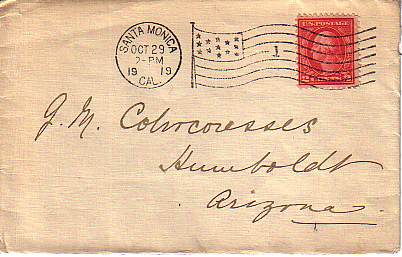 SANTA MONICA
OCT 29
2-PM
1919
CAL.
1
U.S. POSTAGE
2 CENTS 2
J. M. Colvocoresses
Humboldt
Arizona